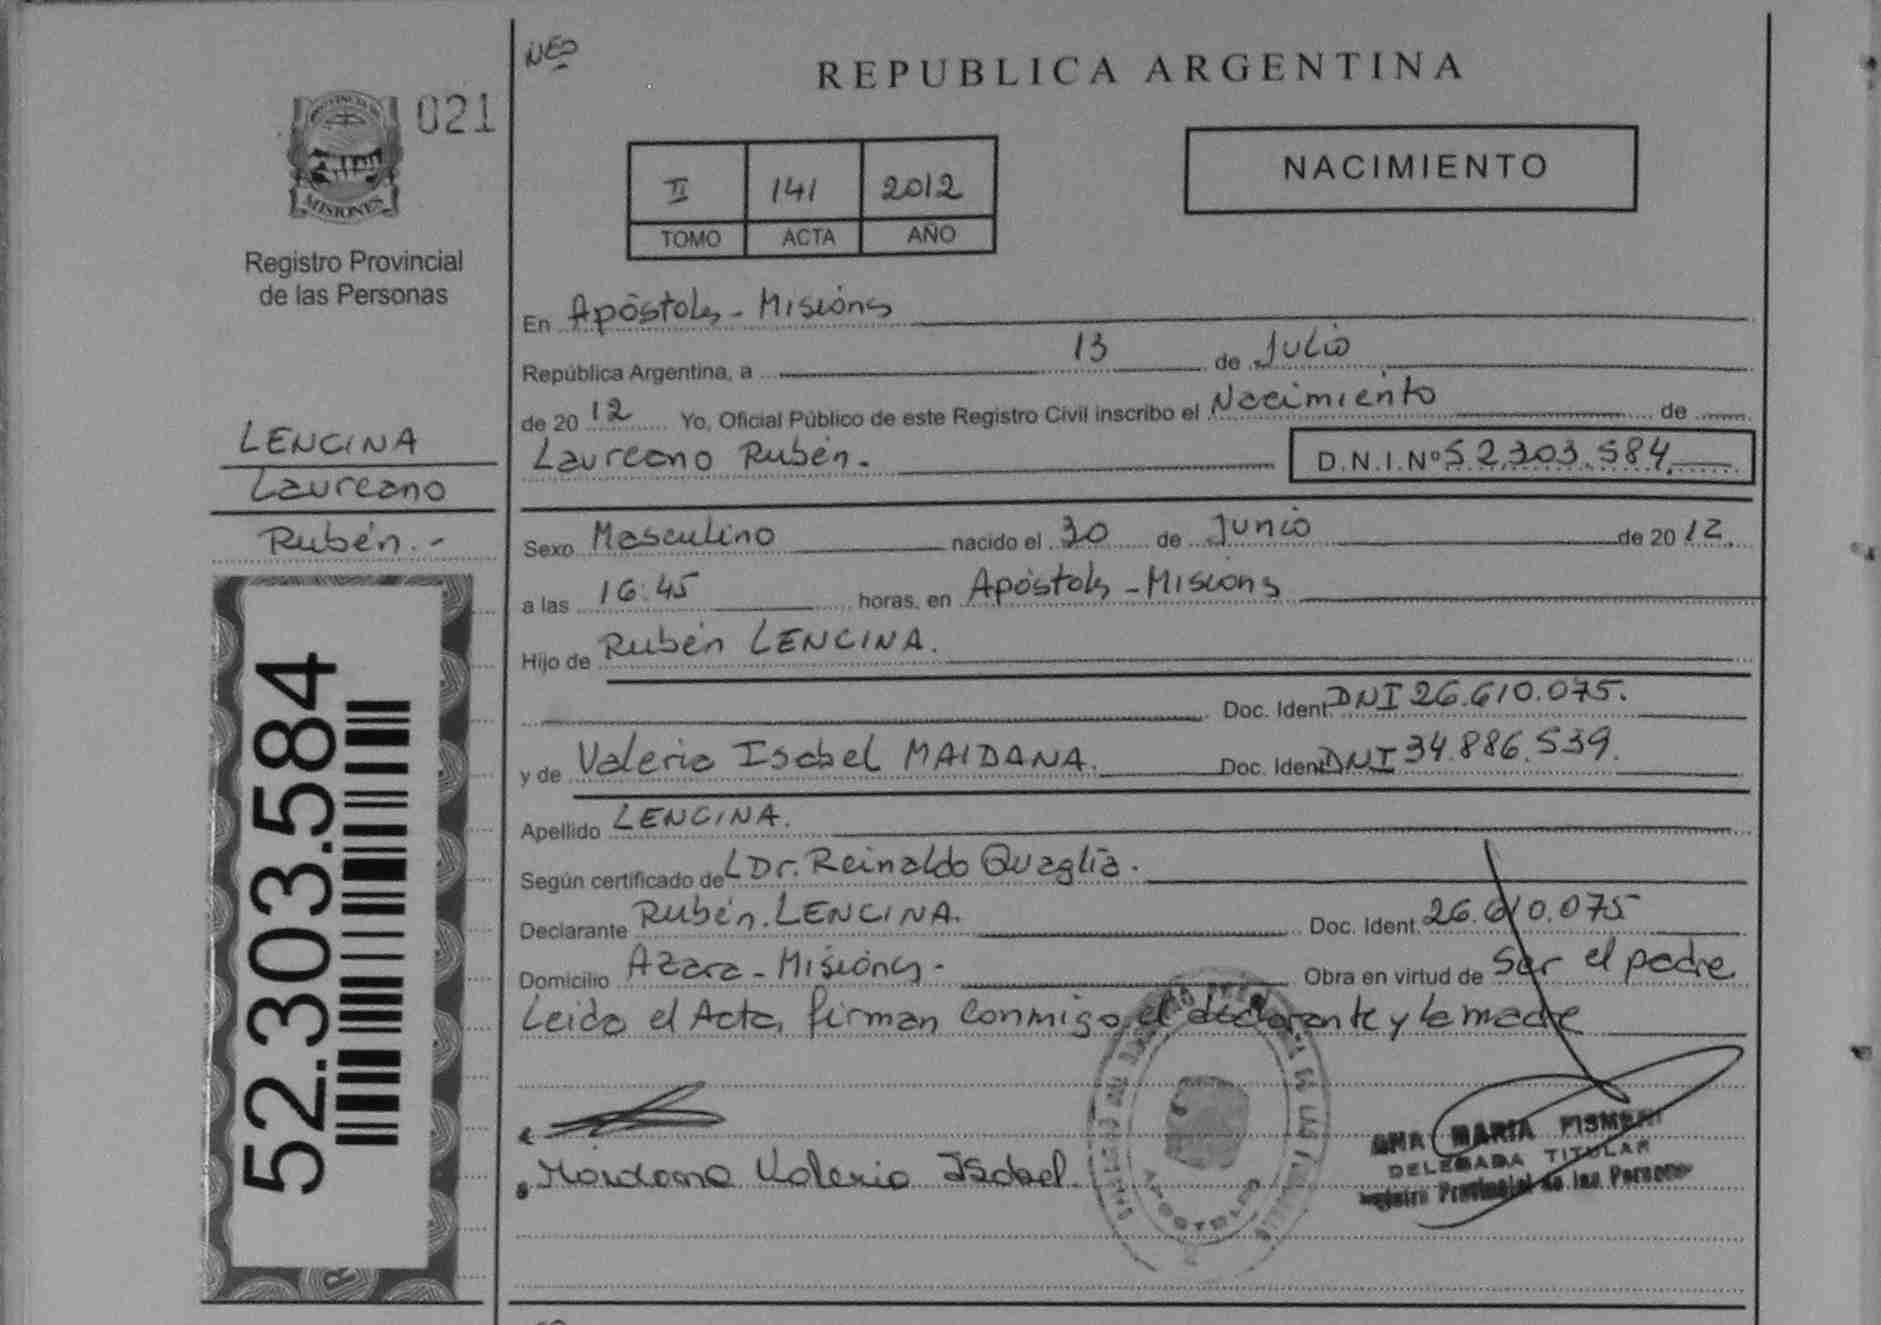 NEO
REPUBLICA ARGENTINA
021
MISIONES
Registro Provincial
de las Personas
II 141 2012
TOMO ACTA AÑO
NACIMIENTO
LENCINA
Laureano
Rubén.-
52.303.584
En Apóstoles - Misiones
República Argentina, a 13 de Julio
de 2012 Yo, Oficial Público de este Registro Civil inscribo el Nacimiento de
Laureano Rubén. D.N.I.Nº 52.303.584
Sexo Masculino nacido el 30 de Junio de 2012
a las 16:45 horas, en Apóstoles - Misiones
Hijo de Rubén LENCINA.
Doc. Ident. DNI 26.610.075.
y de Valeria Isabel MAIDANA. Doc. Ident. DNI 34.886.539.
Apellido LENCINA.
Según certificado del Dr. Reinaldo Quaglia.
Declarante Rubén LENCINA. Doc. Ident. 26.610.075
Domicilio Azara - Misiones - Obra en virtud de Ser el padre
Leida el Acta, firman conmigo, el declarante y la madre
Maidana Valeria Isabel
ANA MARIA
DELEGADA TITULAR
Registro Provincial de las Personas
APOSTOLES